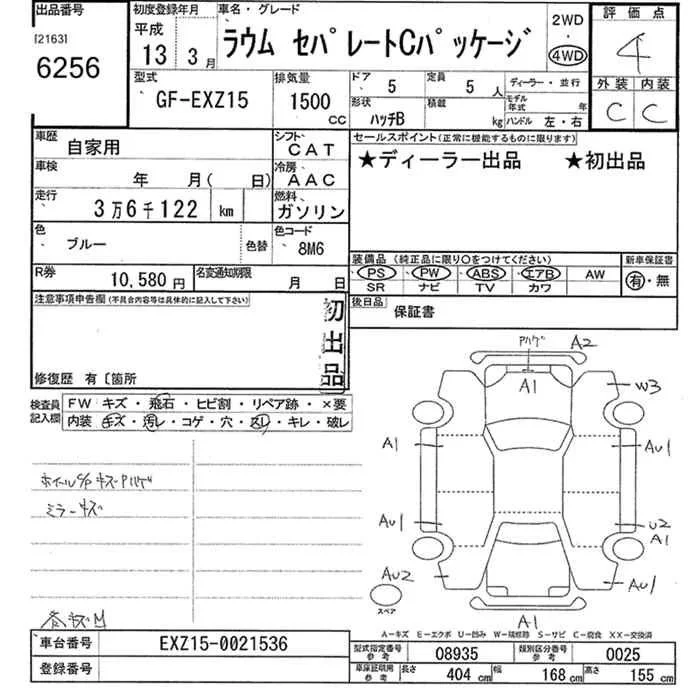 出品番号
[2163]
6256
初度登録年月
平成
13年 3月
車名・グレード
ラウム セパレートCパッケージ
2WD
・
4WD
評価点
4
外装 内装
C C
型式
GF-EXZ15
排気量
1500
CC
ドア 5
定員 5 人
ディーラー・並行
形状 ハッチB
積載 kg
モデル年式 年
ハンドル 左・右
車歴 自家用
シフト CAT
車検 年 月( 日)
冷房 AAC
走行 3万6千122 km
燃料 ガソリン
色 ブルー 色替
色コード 8M6
R券 10,580円
名変通知期限 月 日
セールスポイント(正常に機能するものに限ります)
★ディーラー出品 ★初出品
装備品(純正品に限り○をつけてください)
新車保証書
PS PW ABS エアB AW
SR ナビ TV カワ
有・無
後日品 保証書
注意事項申告欄(不具合内容等は具体的に記入して下さい)
初出品
修復歴 有〔箇所
検査員記入欄
FW キズ・飛石・ヒビ割・リペア跡・×要
内装 キズ・汚レ・コゲ・穴・凹レ・キレ・破レ
ホイールC/P キズ Pハゲ
ミラーキズ
Pハゲ
A2
A1
W3
A1
AU1
AU1
U2
A1
AU2
AU1
スペア
A1
A-キズ E-エクボ U-凹み W-補修跡 S-サビ C-腐食 XX-交換済
車台番号 EXZ15-0021536
登録番号
型式指定番号 参考 08935
類別区分番号 参考 0025
車庫証明用 参考
長さ 404 cm
幅 168 cm
高さ 155 cm